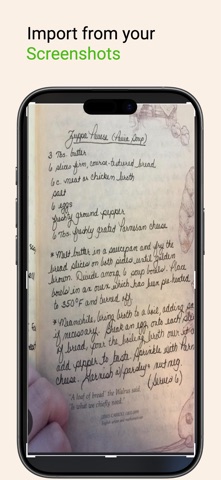 Import from your
Screenshots
Zuppa Pavese (Pavia Soup)
3 Tbs. butter
6 slices firm, coarse-textured bread
6 c. meat or chicken broth
salt
6 eggs
freshly ground pepper
6 Tbs. freshly grated Parmesan cheese
* Melt butter in a saucepan and fry the
bread slices on both sides until golden
brown. Divide among 6 soup bowls. Place
bowls in an oven which has been pre-heated
to 350°F and turned off.
* Meanwhile, bring broth to a boil, adding
if necessary. Break an egg onto each slice
of bread, pour the boiling broth over
add pepper to taste. Sprinkle with
cheese. Garnish w/parsley nutmeg
(Serves 6)
"A loaf of bread" the Walrus said,
"Is what we chiefly need."